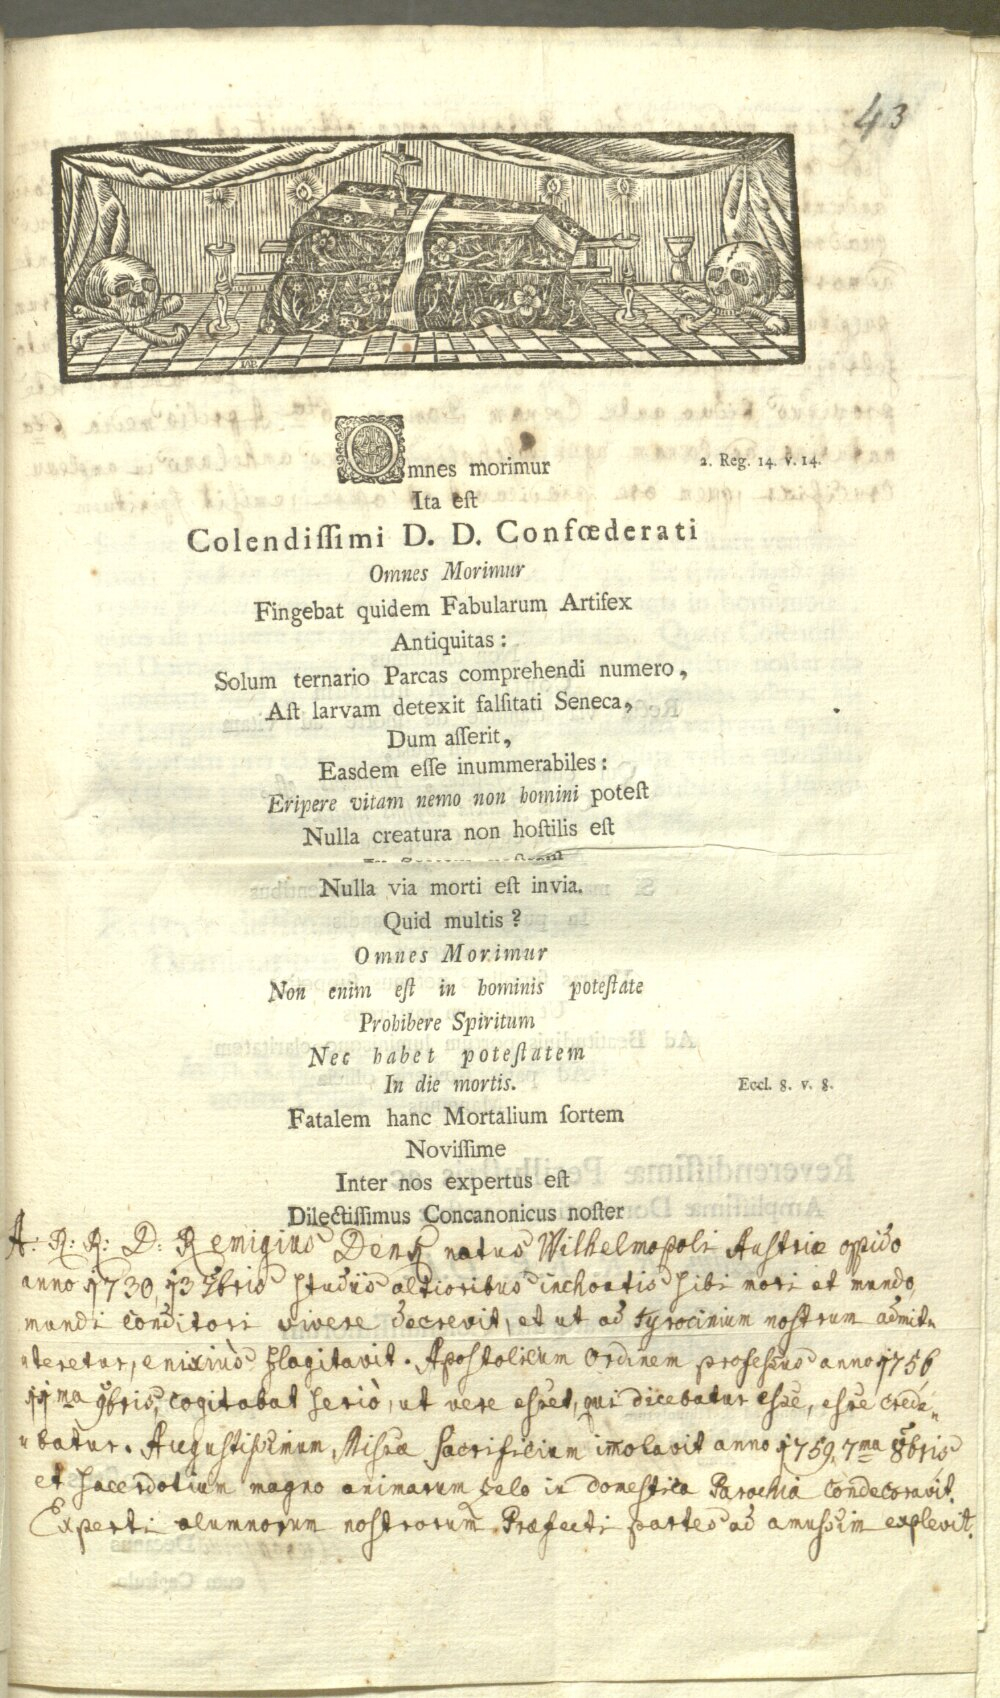 43
IAP.
Omnes morimur 2. Reg. 14. v. 14.
Ita eſt
Colendiſſimi D. D. Confœderati
Omnes Morimur
Fingebat quidem Fabularum Artifex
Antiquitas:
Solum ternario Parcas comprehendi numero,
Aſt larvam detexit falſitati Seneca,
Dum aſſerit,
Easdem eſſe inummerabiles:
Eripere vitam nemo non homini poteſt
Nulla creatura non hoſtilis eſt
Nulla via morti eſt invia.
Quid multis?
Omnes Morimur
Non enim eſt in hominis poteſtate
Prohibere Spiritum
Nec habet poteſtatem
In die mortis. Eccl. 8. v. 8.
Fatalem hanc Mortalium ſortem
Noviſſime
Inter nos expertus eſt
Dilectiſſimus Concanonicus noſter
A: R: R: D: Remigius Denk natus Wilhelmopoli Austriæ oppido
anno 1730, 13 8bris studiis altioribus inchoatis sibi mori et mundo,
mundi conditori vivere decrevit, et ut ad Tyrocinium nostrum admit„
„teretur, enixius flagitavit. Apostolicum Ordinem professus anno 1756
11ma 9bris, cogitabat serio, ut vere esset, qui dicebatur esse, esse crede„
„batur. Augustissimum Missæ sacrificium imolavit anno 1759, 7ma 8bris
et sacerdotium magno animarum zelo in domestica Parochia condecoravit.
Experti alumnorum nostrorum Præfecti partes ad amussim explevit.